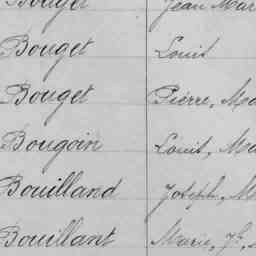 Bouget Jean Mar
Bouget Louis
Bouget Pierre, Mo
Bougoin Louis, M
Bouilland Joseph, M
Bouillant Marie, J